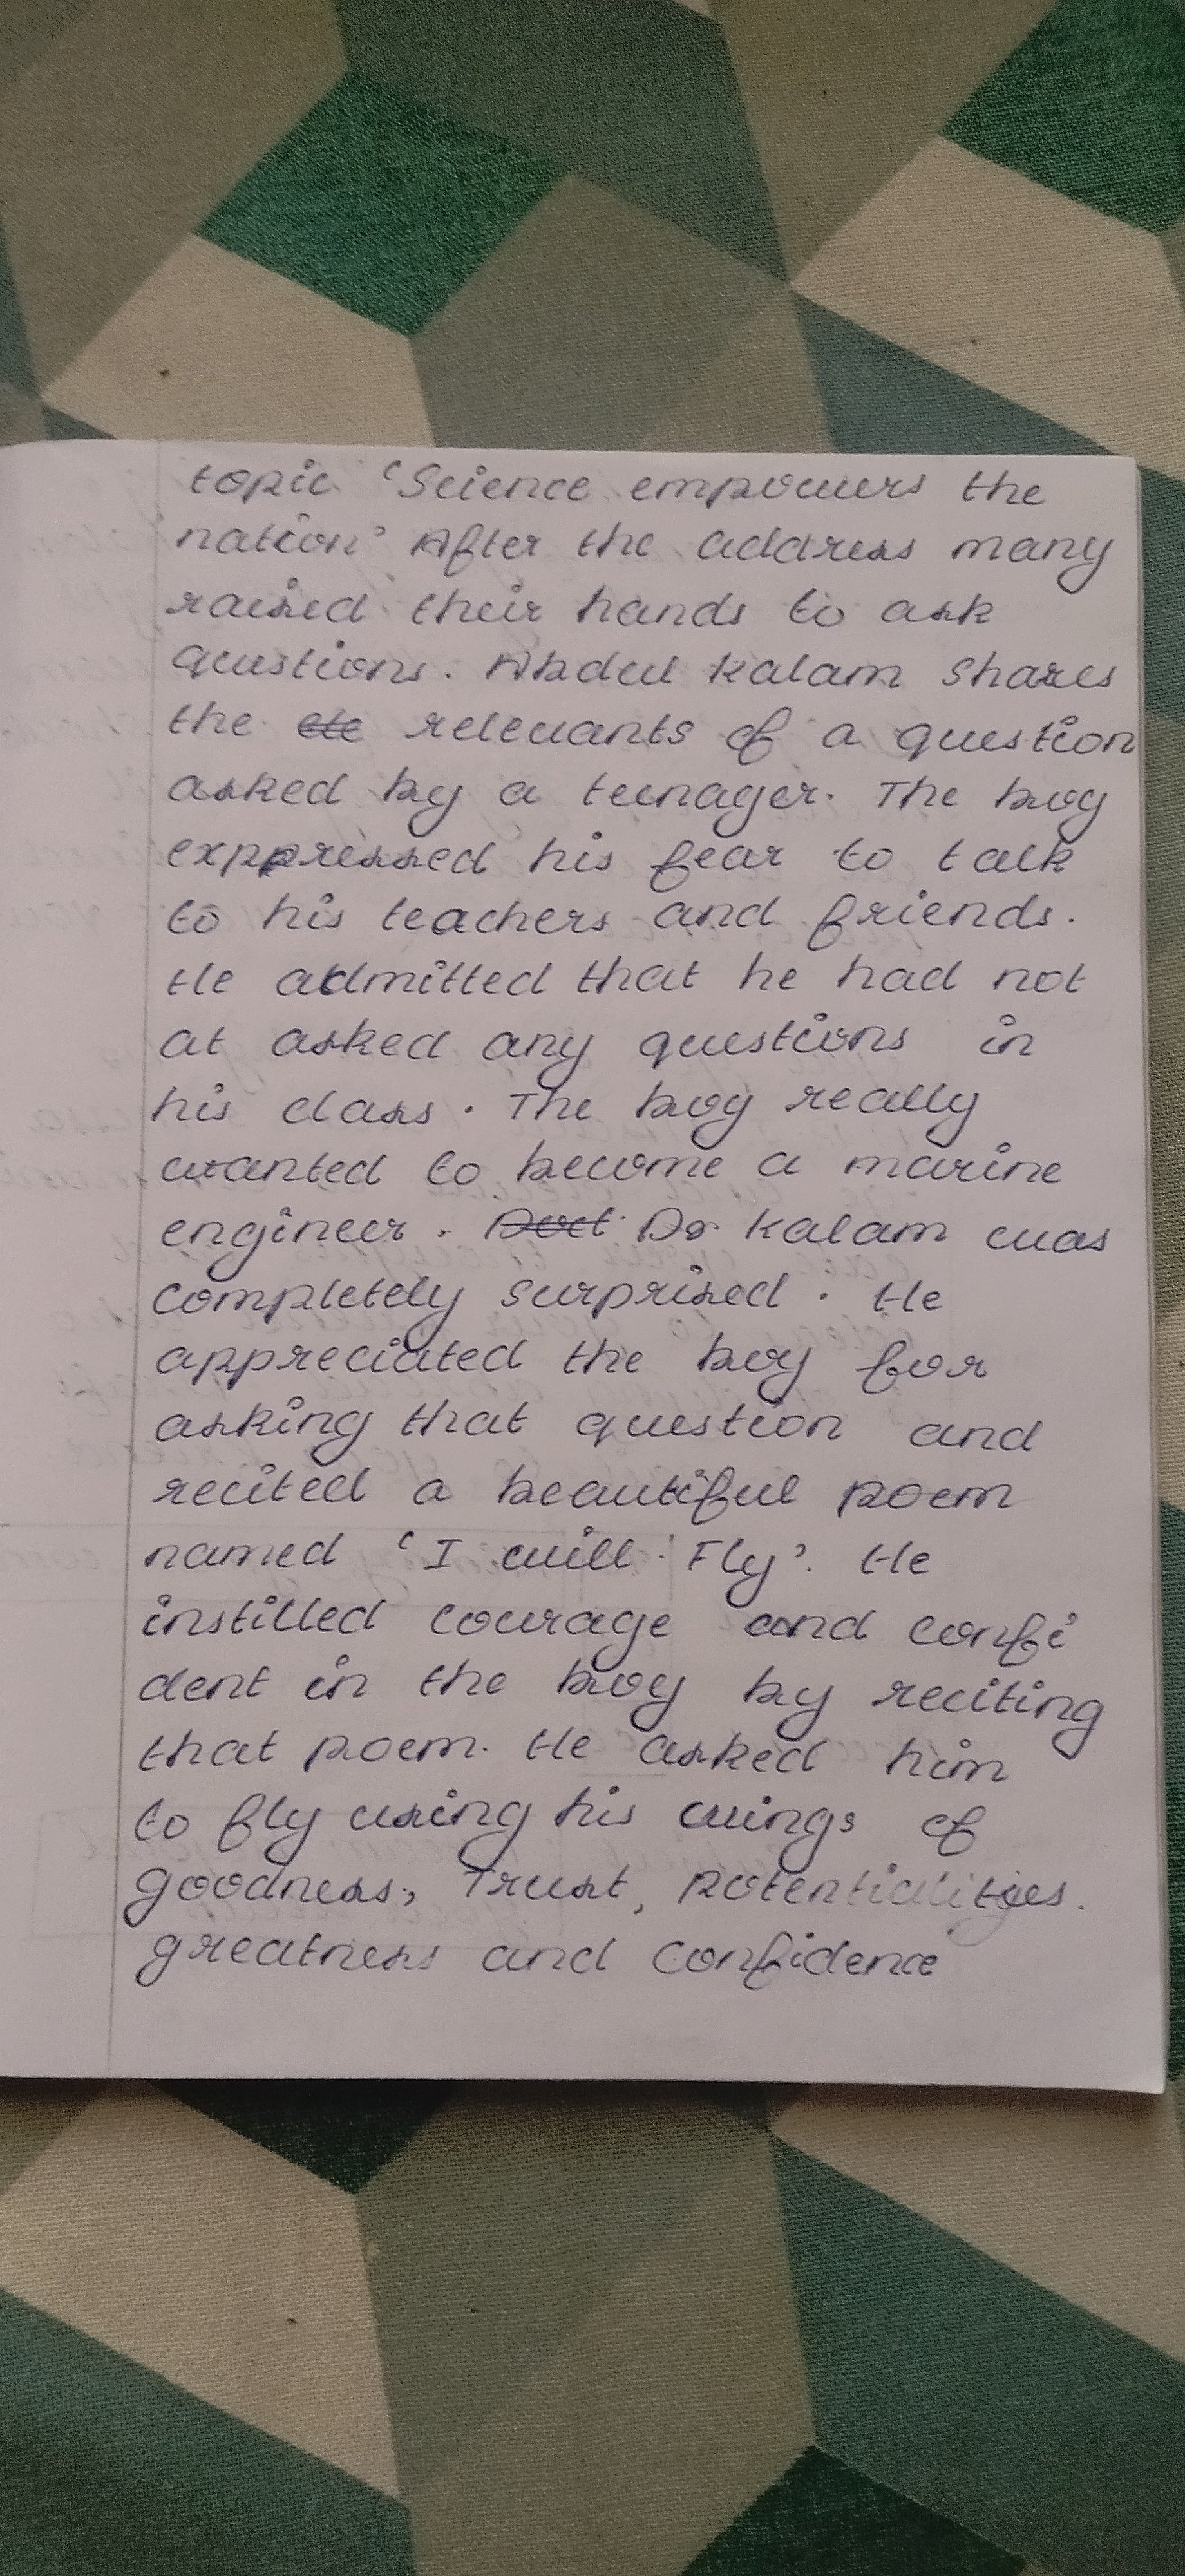 topic 'Science empowers the
nation' After the address many
raised their hands to ask
questions. Abdul Kalam Shares
the relevants of a question
asked by a teenager. The boy
exppressed his fear to talk
to his teachers and friends.
He admitted that he had not
at asked any questions in
his class. The boy really
wanted to become a marine
engineer. Dr. Kalam was
completely surprised. He
appreciated the boy for
asking that question and
recited a beautiful poem
named 'I will Fly'. He
instilled courage and confi
dent in the boy by reciting
that poem. He asked him
to fly using his wings of
goodness, Trust, Potentialities.
greatness and Confidence